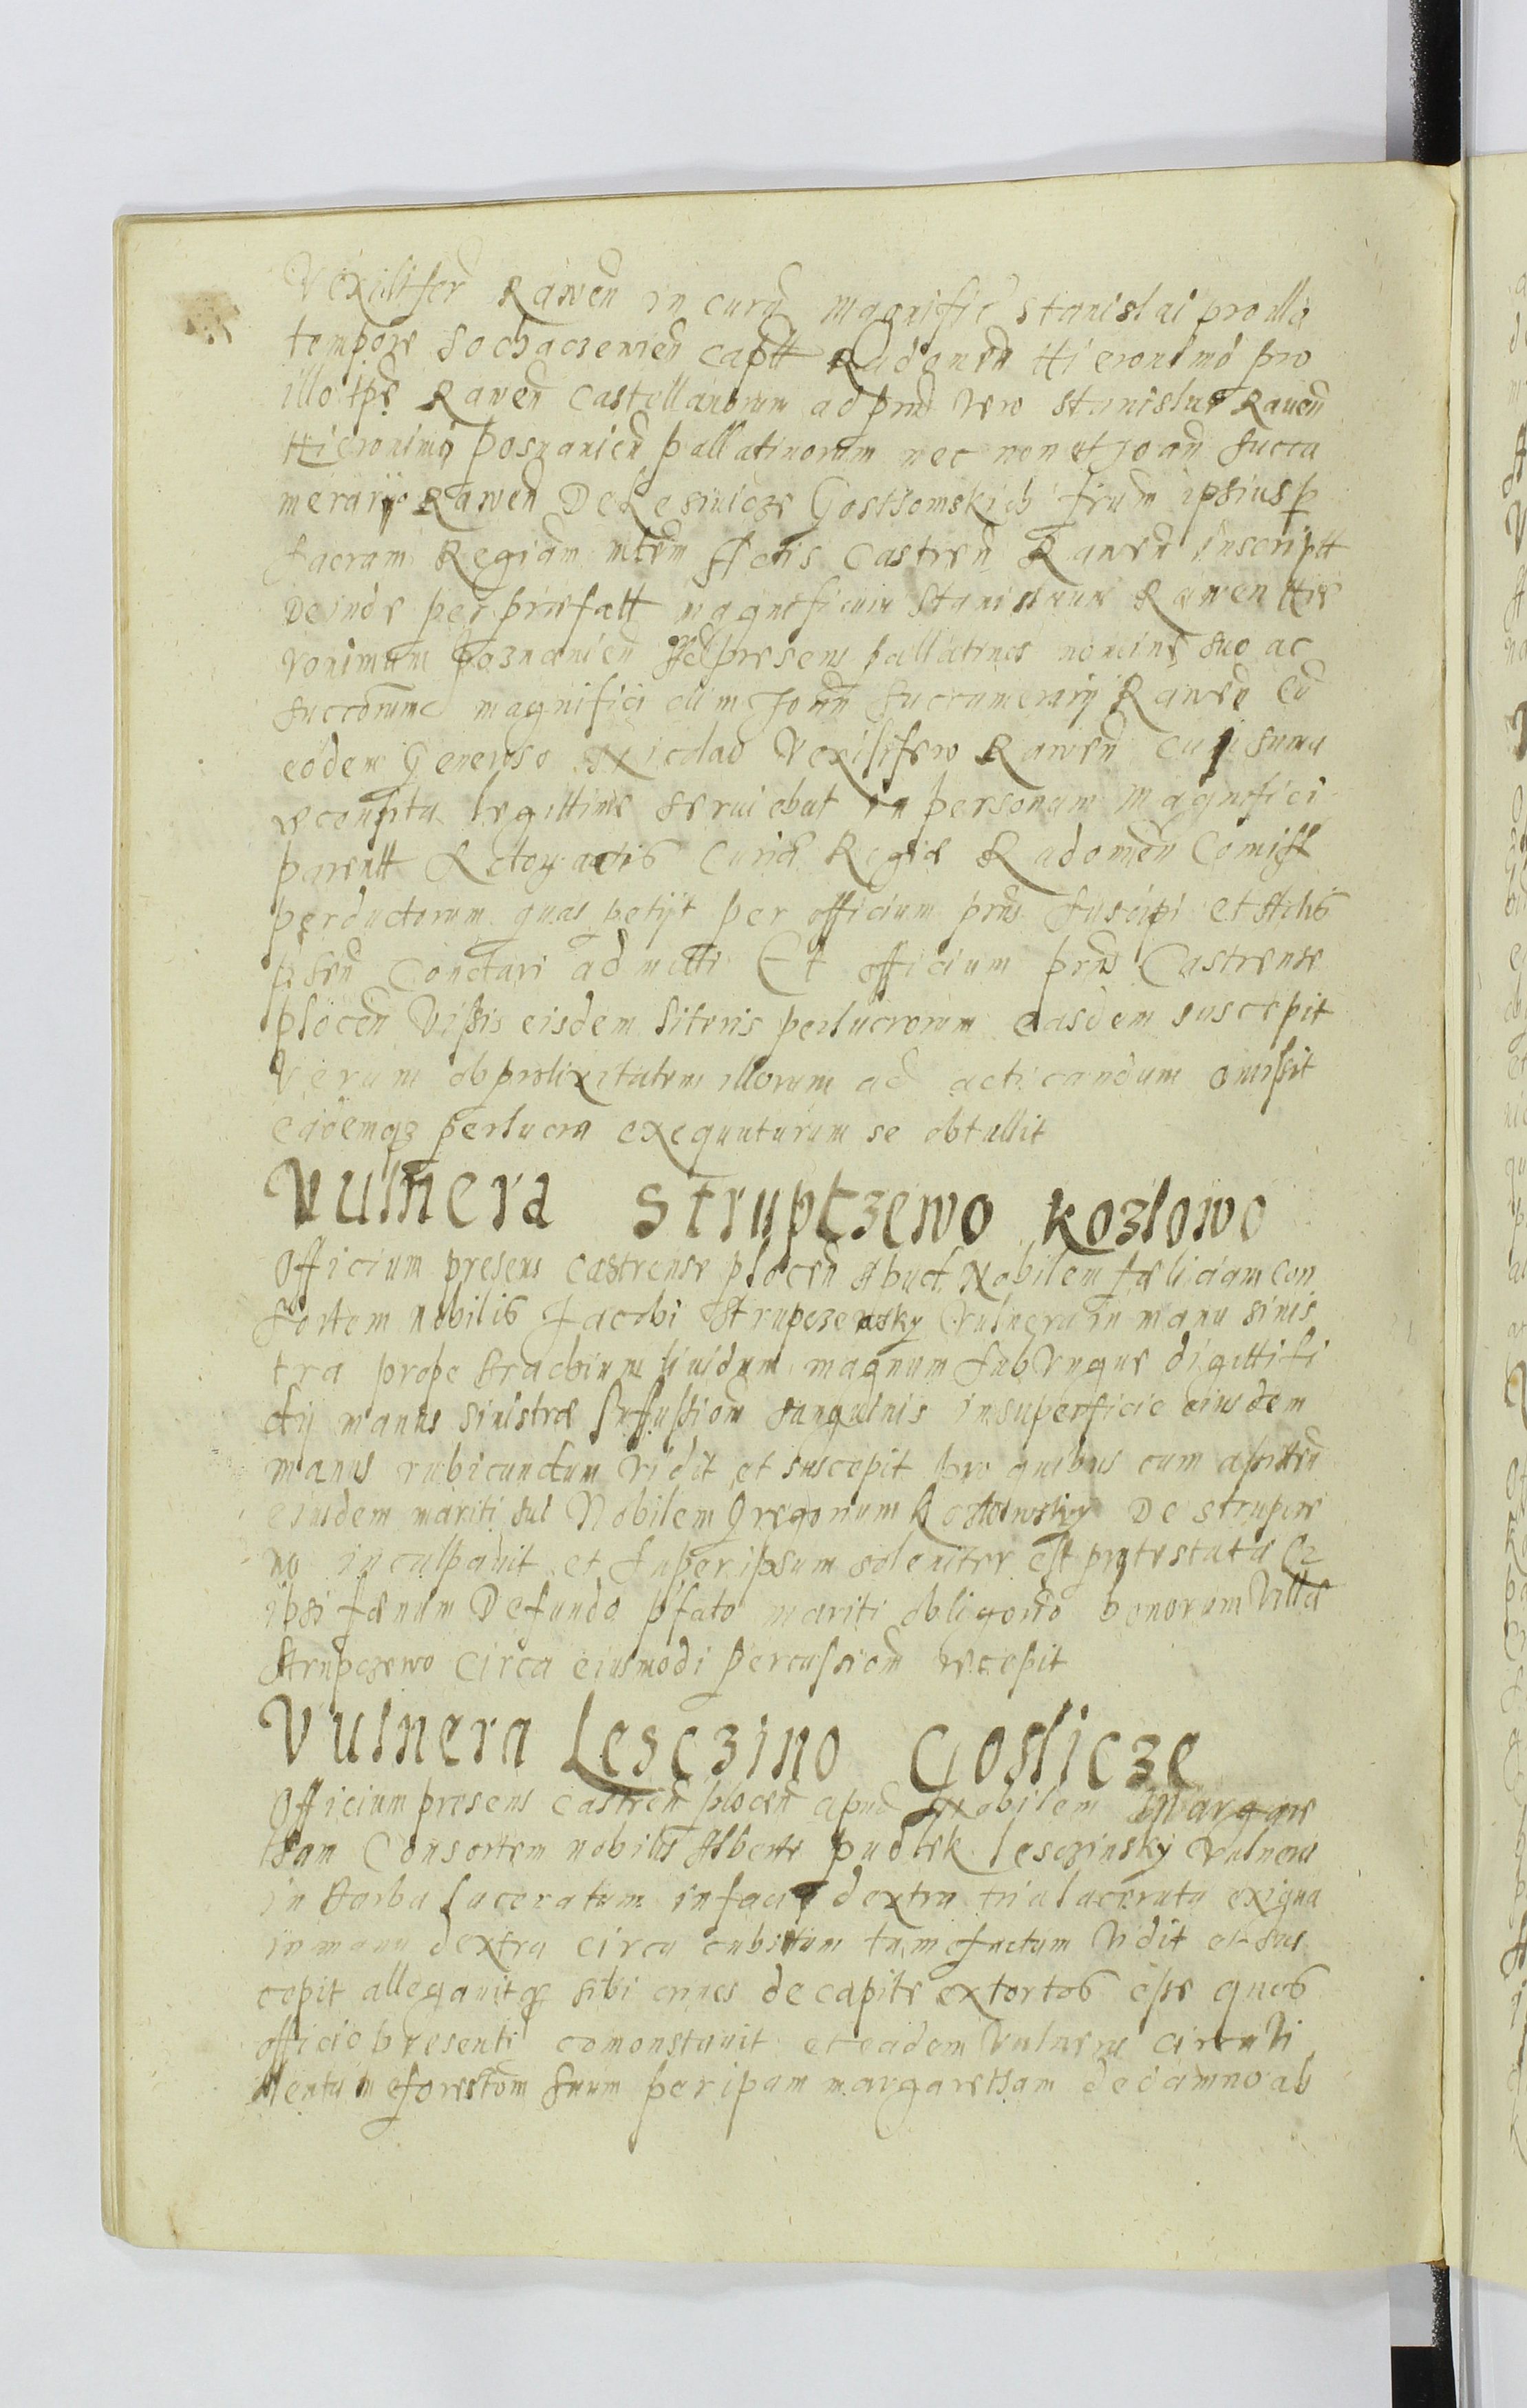 Vexilifer Rawen in curia magnific Stanislai pro illo
tempore Sochaczewien Captt Radomen Hieronimo pro
illo tpe Rawen Castellanorum ad prns vero Stanislai Rauen
Hieronimi Posnanien pallatinorum nec non et Joan Succa
merarijo Rawen De Lesnicze Gostsomskich frum ipsius p
sacram Regiam mtem Actis Castren Rawen inscriptt
Deinde per praefatt magnificum Stanislaum Rawen Hie
ronimum Poznanien Ad presens pallatinos nomine suo ac
succorume magnifici olim Joan Succamerarij Rawen Cu
eodem Generoso Nicolao Vexilifero Rawen summa
legittime seruiebat in personam Magnifici
parentt Rectorj actis Curiae Regiae Radomen Comiss
perductorum quas petijt per officium prns suscipi et Actis
Conotari admitti Et officium prns Castrense
plocen Vissis eisdem literis perlucrorum easdem suscepit
Verum ob prolixitatem illorum ad acticandum omissit
eademqz perlucra exequuturum se obtullit
Vulnera Strupczewo Kozlowo
Officium presens castrense plocen Apud Nobilem faeliciam con
sortem nobilis Jacobi Strupczewsky vulnera in manu sinis
tra prope brachium liuidum magnum sub ungue digitti fi
manus sinistrae suffussiom sanguinis in superficie eiusdem
manus rubicundum vidit et suscepit pro quibus cum assisten
eiusdem mariti sui Nobilem Gregorium Kozlowsky De Strupcze
wo inculpauit et super ipsum soleniter est protestata
ipsi De fundo pfato mariti obligatto bonorum Villae
Strupczewo circa eiusmodi percussiom recepit
Vulnera Lesczino Goslicze
Officium presens castren plocen apud Nobilem Margare
tham Consortem nobilis Alberti pudlek lesczinsky vulnera
in barba laceratum in facie dextra tria lacerata exigua
in manu dextra circa cubitum tumefactum vidit et sus
cepit allegauitqz sibi crines de capite extortos esse quos
officio presenti comonstrauit et eadem vulnera
Mentum suum per ipsam margaretham de damno ab